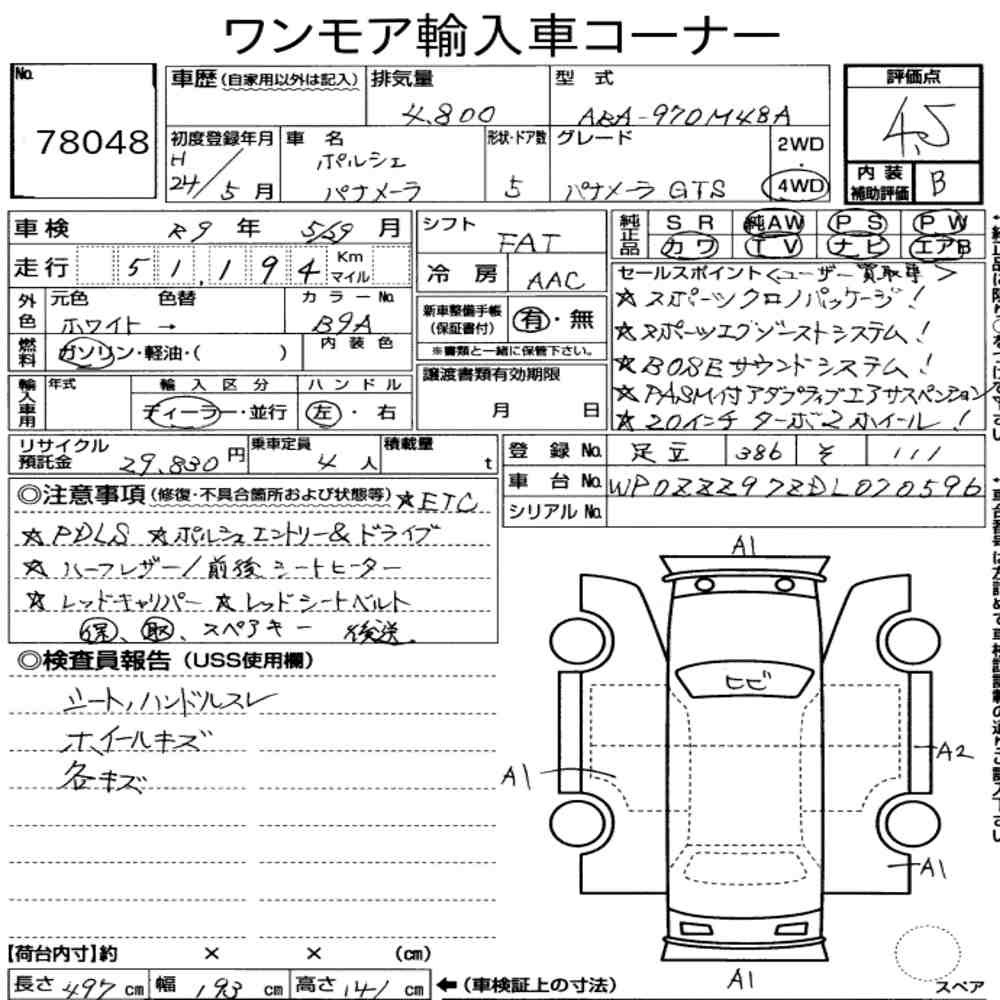 ワンモア輸入車コーナー
No. 78048
車歴(自家用以外は記入) 排気量 4.800 型式 ABA-970M48A
評価点 4.5
初度登録年月 H 24/5月 車名 ポルシェ パナメーラ 形状・ドア数 5 グレード パナメーラ GTS 2WD・4WD
内装補助評価 B
車検 R9年 5/29月
シフト FAT
純正品 SR 純AW PS PW
カワ TV ナビ エアB
走行 51,194 Km マイル
冷房 AAC
セールスポイント <ユーザー買取車>
★スポーツクロノパッケージ!
★スポーツエグゾーストシステム!
★BOSEサウンドシステム!
★PASM付アダプティブエアサスペンション
★20インチ ターボ2ホイール!
外色 元色 ホワイト → 色替 カラーNo. B9A
新車整備手帳(保証書付) 有・無
※書類と一緒に保管下さい。
燃料 ガソリン・軽油・( ) 内装色
輸入車用 年式 輸入区分 ディーラー・並行 ハンドル 左・右
譲渡書類有効期限 月 日
リサイクル預託金 29,830円 乗車定員 4人 積載量 t
登録No. 足立 386 そ 111
車台No. WP0ZZZ97ZDL070596
シリアルNo.
◎注意事項(修復・不具合箇所および状態等) ★ETC
★PDLS ★ポルシェエントリー&ドライブ
★ハーフレザー/前後シートヒーター
★レッドキャリパー ★レッドシートベルト
保、取、スペアキー 後送。
◎検査員報告(USS使用欄)
シート,ハンドルスレ
ホイールキズ
各キズ
A1
ヒビ
A2
A1
A1
A1
スペア
【荷台内寸】約 × × (cm)
長さ 497 cm 幅 193 cm 高さ 141 cm ←(車検証上の寸法)